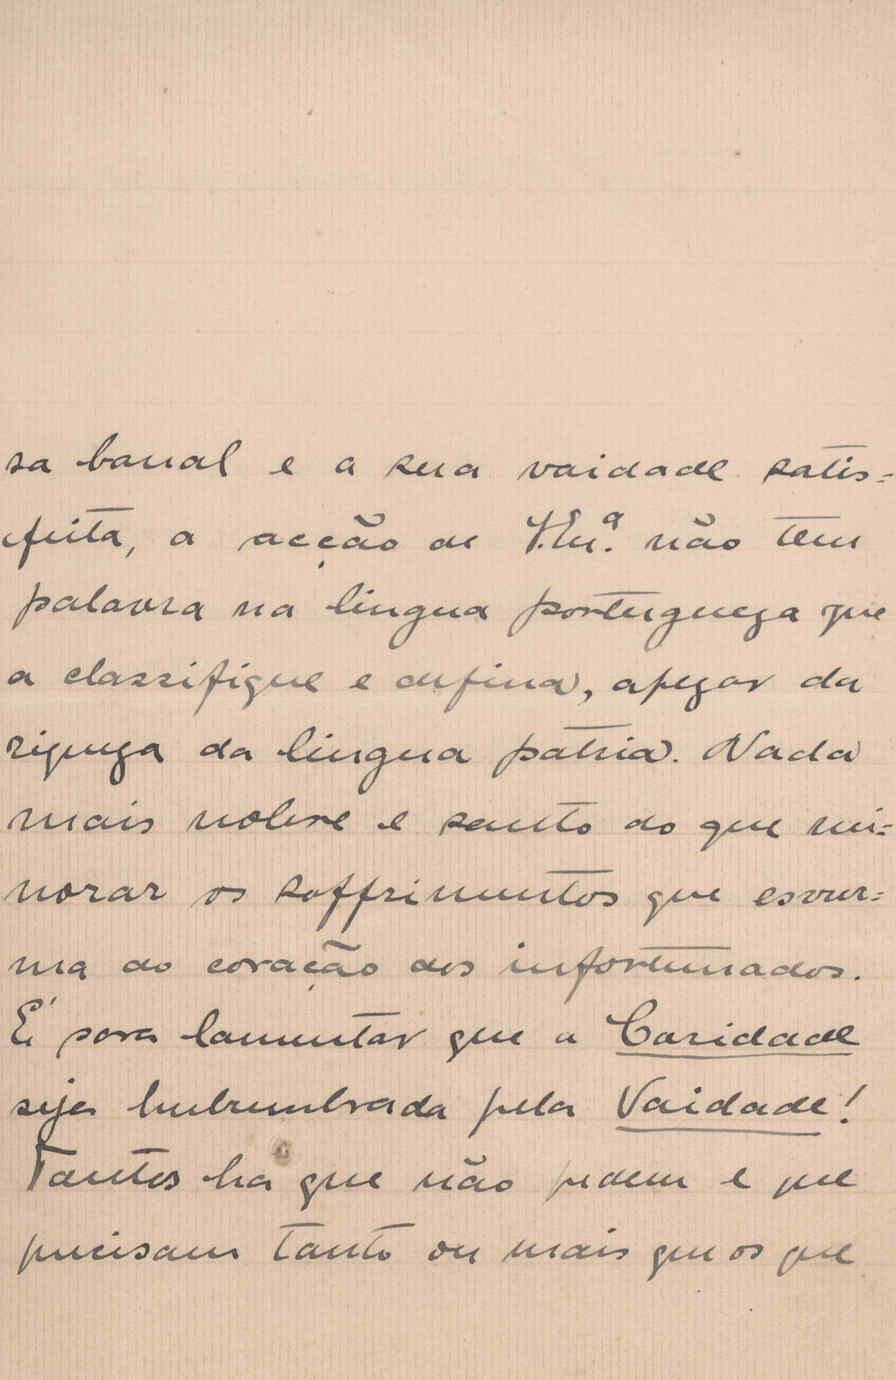 sa banal e a sua vaidade satis=
feita, a acção de V.En.ª não tem
palavra na lingua portugueza que
a classifique e defina, apezar da
riqueza da lingua patria. Nada
mais nobre e santo do que mi=
norar os soffrimentos que esvur=
ma do coração dos infortunados.
É para lamentar que a Caridade
seja pela Vaidade!
Tantos ha que não pedem e que
precisam tanto ou mais que os que